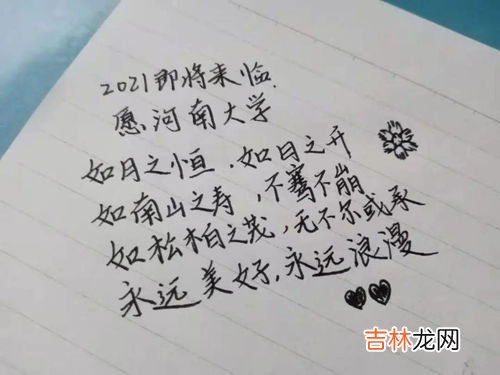 2021即将来临.
愿河南大学
如月之恒，如日之开
如南山之寿，不骞不崩
如松柏之茂，无不尔或承
永远美好，永远浪漫
吉林龙网